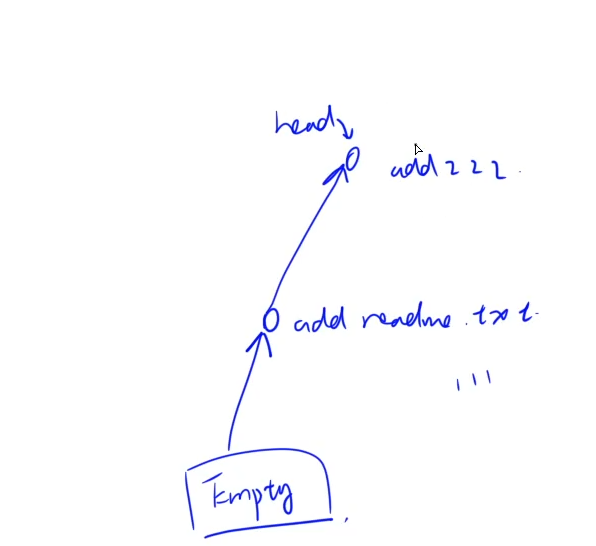 head
add 222
add readme.txt
111
Empty